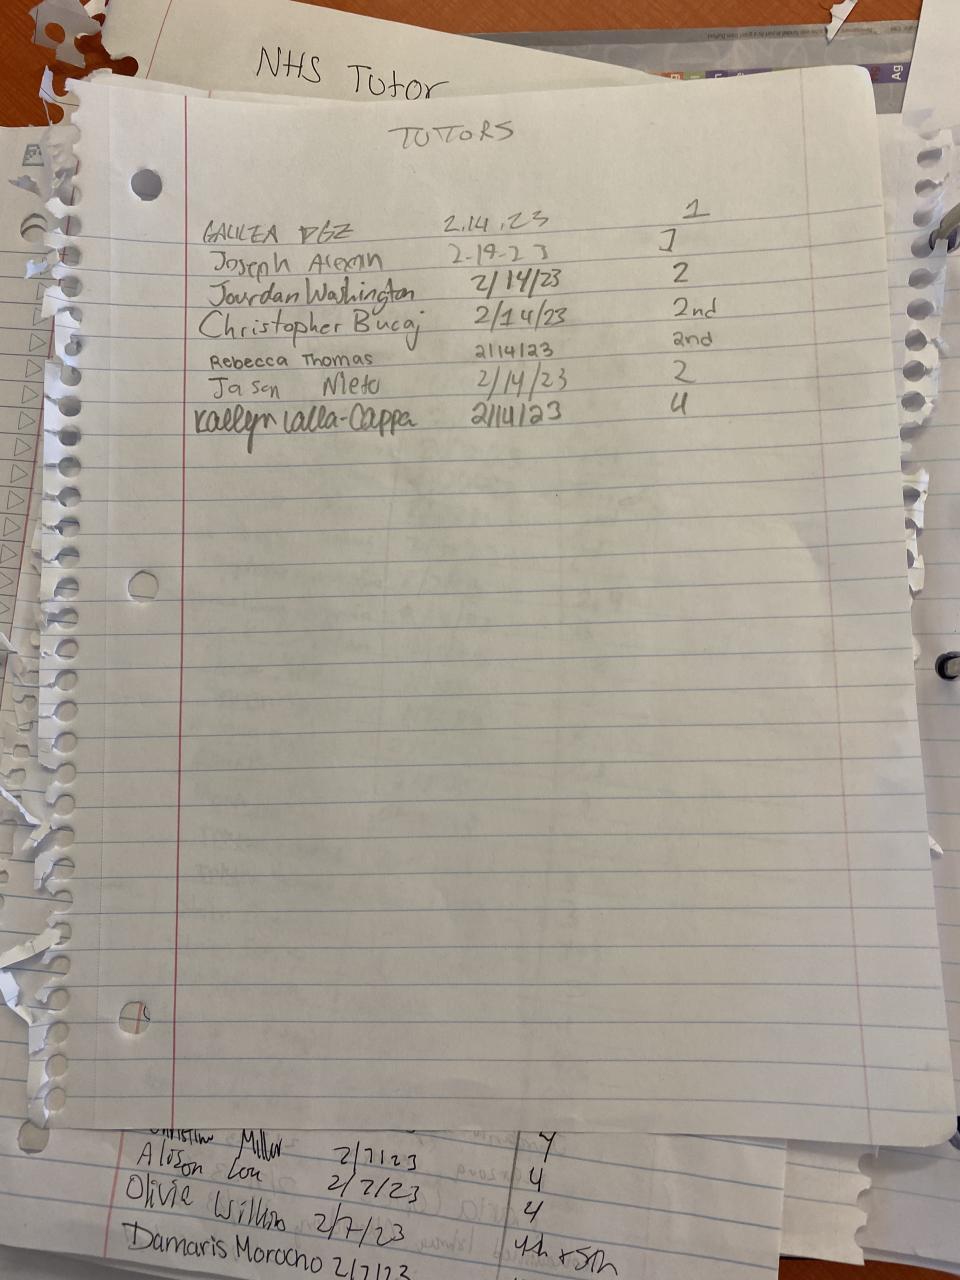 NHS Tutor
Ag
TUTORS
GALILEA DGZ 2.14.23 1
Joseph 2-19-23 1
Jourdan Washington 2/14/23 2
Christopher Bucaj 2/14/23 2nd
Rebecca Thomas 2/14/23 2nd
Jason Nieto 2/14/23 2
Kaelyn Lalla-Cappa 2/14/23 4
Miller 2/7/23 4
Alison 2/7/23 4
Olivia 2/7/23 4
Damaris Morocho 2/7/23 4th + 5th